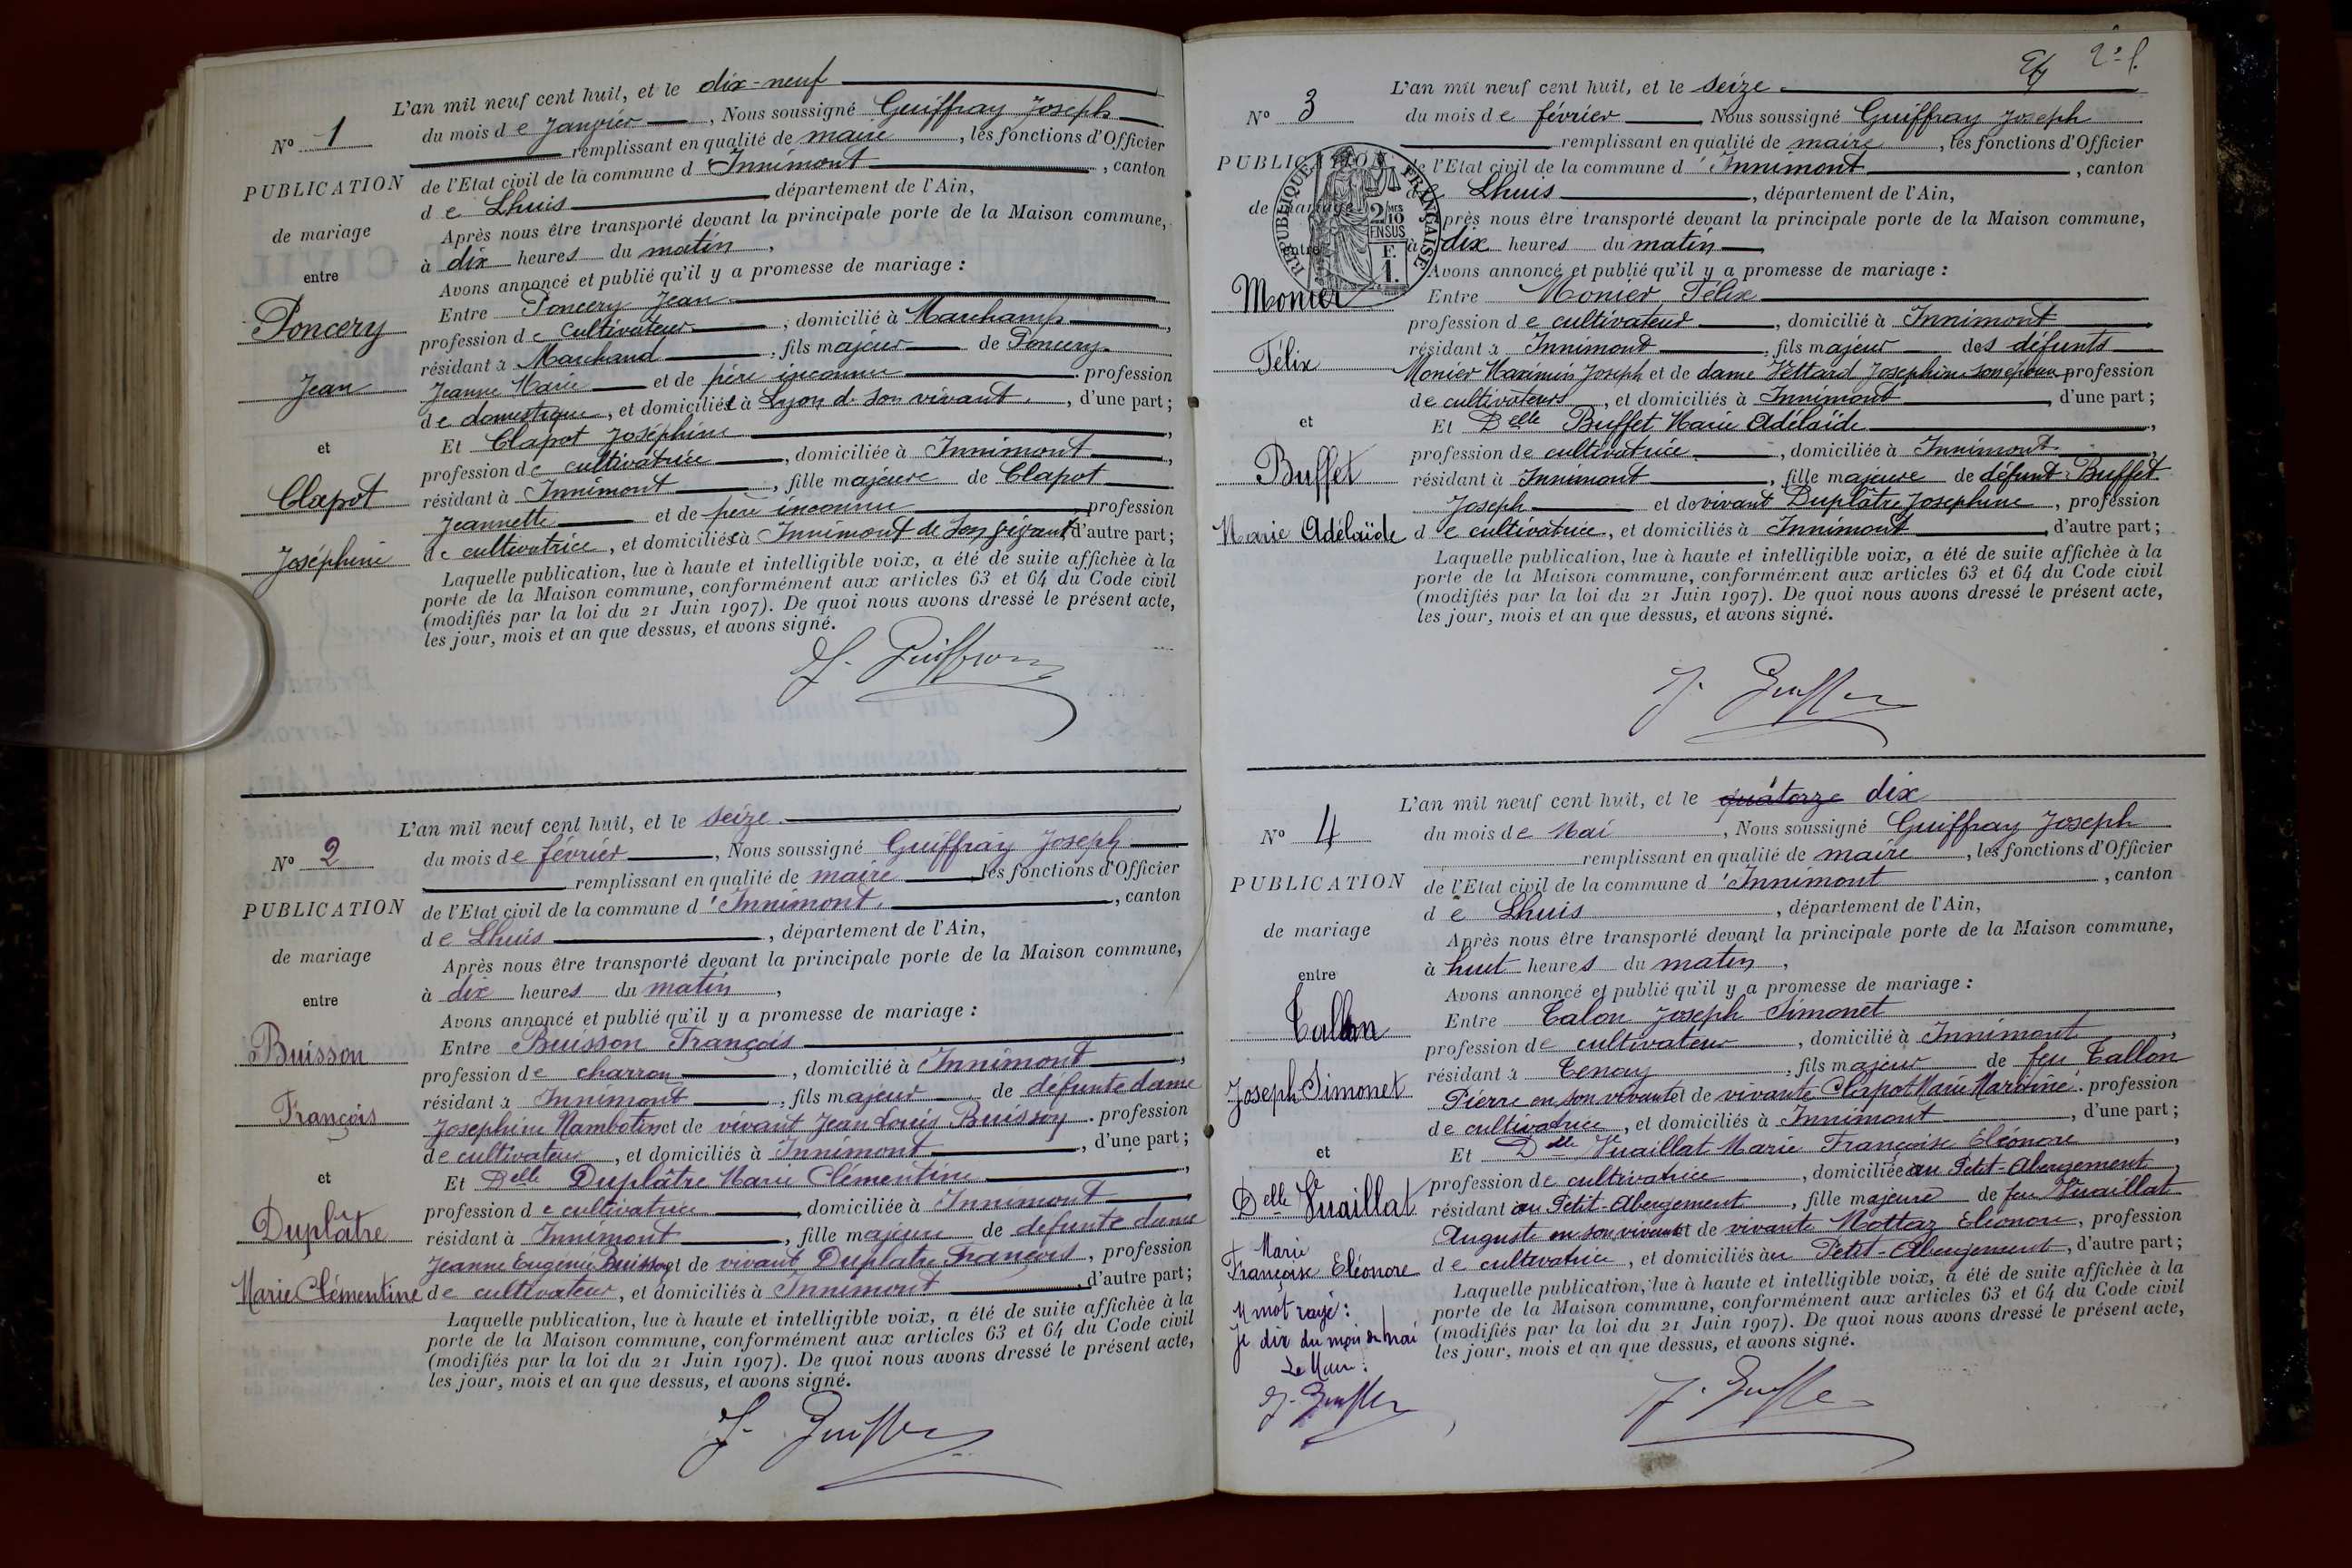 L'an mil neuf cent huit, et le dix-neuf
N° 1
du mois de Janvier, Nous soussigné Guiffray Joseph
remplissant en qualité de maire, les fonctions d'Officier
PUBLICATION
de l'Etat civil de la commune d'Innimont, canton
de Lhuis département de l'Ain,
de mariage
Après nous être transporté devant la principale porte de la Maison commune,
à dix heures du matin,
entre
Avons annoncé et publié qu'il y a promesse de mariage :
Poncery
Entre Poncery Jean
profession de cultivateur, domicilié à Marchamp,
résidant à Marchand, fils majeur de Poncery
Jean
Jeanne Marie et de père inconnu. profession
de domestique, et domiciliée à Lyon de son vivant, d'une part ;
et
Et Clapot Joséphine,
profession de cultivatrice, domiciliée à Innimont,
Clapot
résidant à Innimont, fille majeure de Clapot
Jeannette et de père inconnu profession
Joséphine
de cultivatrice, et domiciliée à Innimont de son vivant d'autre part ;
Laquelle publication, lue à haute et intelligible voix, a été de suite affichèe à la
porte de la Maison commune, conformément aux articles 63 et 64 du Code civil
(modifiés par la loi du 21 Juin 1907). De quoi nous avons dressé le présent acte,
les jour, mois et an que dessus, et avons signé.
L'an mil neuf cent huit, et le seize
N° 2
du mois de février, Nous soussigné Guiffray Joseph
remplissant en qualité de maire les fonctions d'Officier
PUBLICATION
de l'Etat civil de la commune d'Innimont, canton
de Lhuis, département de l'Ain,
de mariage
Après nous être transporté devant la principale porte de la Maison commune,
entre
à dix heures du matin,
Avons annoncé et publié qu'il y a promesse de mariage :
Buisson
Entre Buisson François
profession de charron, domicilié à Innimont,
François
résidant à Innimont, fils majeur de défunte dame
Josephine Nambotin et de vivant Jean Louis Buisson. profession
de cultivateur, et domiciliés à Innimont, d'une part ;
et
Et Delle Duplâtre Marie Clémentine,
profession de cultivatrice, domiciliée à Innimont
Duplâtre
résidant à Innimont, fille majeure de défunte dame
Jeanne Eugénie Buisson et de vivant Duplatre François, profession
Marie Clémentine
de cultivateur, et domiciliés à Innimont, d'autre part ;
Laquelle publication, lue à haute et intelligible voix, a été de suite affichèe à la
porte de la Maison commune, conformément aux articles 63 et 64 du Code civil
(modifiés par la loi du 21 Juin 1907). De quoi nous avons dressé le présent acte,
les jour, mois et an que dessus, et avons signé.
2e f.
L'an mil neuf cent huit, et le seize
N° 3
du mois de février Nous soussigné Guiffray Joseph
remplissant en qualité de maire, les fonctions d'Officier
PUBLICATION
de l'Etat civil de la commune d'Innimont, canton
de Lhuis, département de l'Ain,
de mariage
Après nous être transporté devant la principale porte de la Maison commune,
entre
à dix heures du matin
RÉPUBLIQUE FRANÇAISE
2/10 MES
EN SUS
F.
1.
Avons annoncé et publié qu'il y a promesse de mariage :
Monier
Entre Monier Félix
profession de cultivateur, domicilié à Innimont,
Félix
résidant à Innimont, fils majeur des défunts
Monier Maximin Joseph et de dame Vettard Josephine son épouse profession
de cultivateurs, et domiciliés à Innimont, d'une part ;
et
Et Delle Buffet Marie Adélaïde,
profession de cultivatrice, domiciliée à Innimont
Buffet
résidant à Innimont, fille majeure de défunt Buffet
Joseph et de vivant Duplâtre Josephine, profession
Marie Adélaïde
de cultivatrice, et domiciliés à Innimont, d'autre part ;
Laquelle publication, lue à haute et intelligible voix, a été de suite affichèe à la
porte de la Maison commune, conformément aux articles 63 et 64 du Code civil
(modifiés par la loi du 21 Juin 1907). De quoi nous avons dressé le présent acte,
les jour, mois et an que dessus, et avons signé.
L'an mil neuf cent huit, et le quatorze dix
N° 4
du mois de Mai, Nous soussigné Guiffray Joseph
remplissant en qualité de maire, les fonctions d'Officier
PUBLICATION
de l'Etat civil de la commune d'Innimont, canton
de Lhuis, département de l'Ain,
de mariage
Après nous être transporté devant la principale porte de la Maison commune,
entre
à huit heures du matin,
Avons annoncé et publié qu'il y a promesse de mariage :
Tallon
Entre Talon Joseph Simonet
profession de cultivateur, domicilié à Innimont,
résidant à Tenay, fils majeur de feu Tallon
Joseph Simonet
Pierre en son vivant et de vivante Clapot Marie Maximine. profession
de cultivatrice, et domiciliés à Innimont, d'une part ;
et
Et Delle Vuaillat Marie Françoise Eléonore,
profession de cultivatrice, domiciliée au Petit-Abergement,
Delle Vuaillat
résidant au Petit-Abergement, fille majeure de feu Vuaillat
Auguste en son vivant et de vivante Mottaz Eléonore, profession
Marie
Françoise Eléonore
de cultivatrice, et domiciliés au Petit-Abergement, d'autre part ;
Laquelle publication, lue à haute et intelligible voix, a été de suite affichèe à la
porte de la Maison commune, conformément aux articles 63 et 64 du Code civil
(modifiés par la loi du 21 Juin 1907). De quoi nous avons dressé le présent acte,
les jour, mois et an que dessus, et avons signé.
mot rayé :
dix du mois de mai
Le Maire :